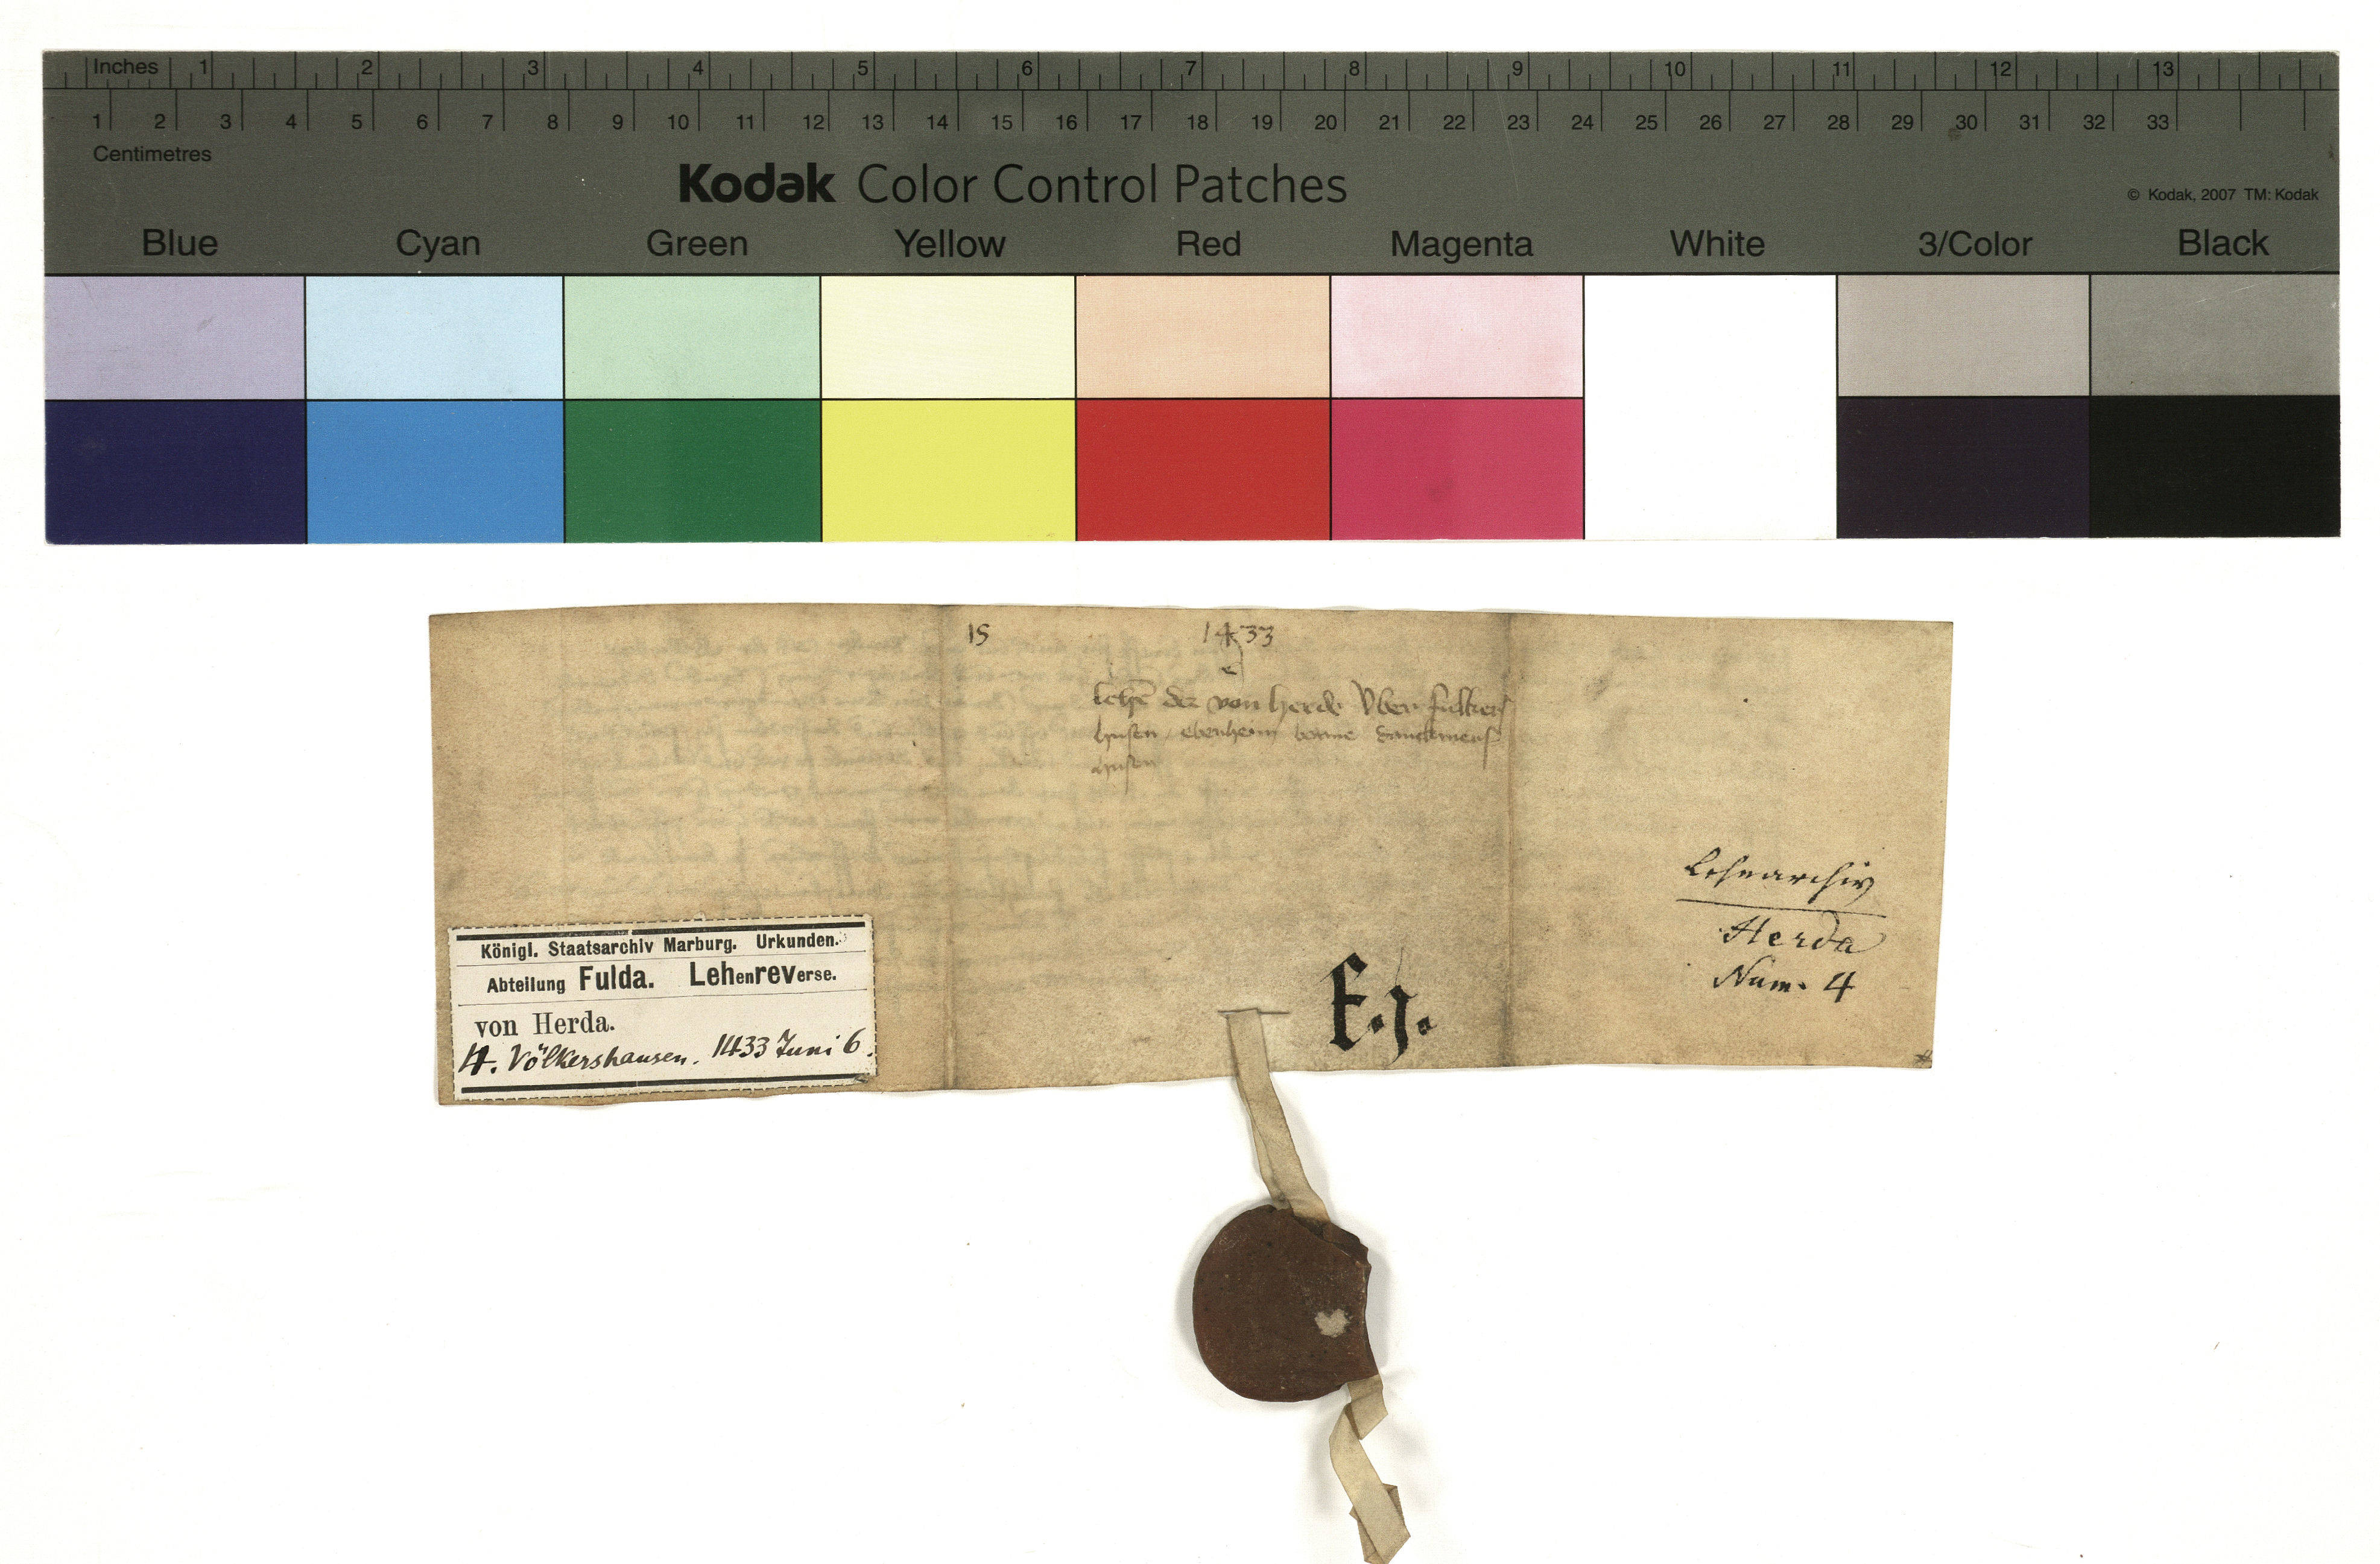 Inches 1 2 3 4 5 6 7 8 9 10 11 12 13
1 2 3 4 5 6 7 8 9 10 11 12 13 14 15 16 17 18 19 20 21 22 23 24 25 26 27 28 29 30 31 32 33
Centimetres
Kodak Color Control Patches
© Kodak, 2007 TM: Kodak
Blue Cyan Green Yellow Red Magenta White 3/Color Black
15 1433
lehē der von herde Vber fulkers
husen / ebenheim borne danckmars
husen
Lehnarchiv
Herda
Num. 4
E.j.
Königl. Staatsarchiv Marburg. Urkunden.
Abteilung Fulda. Lehenreverse.
von Herda.
4. Völkershausen. 1433 Juni 6.